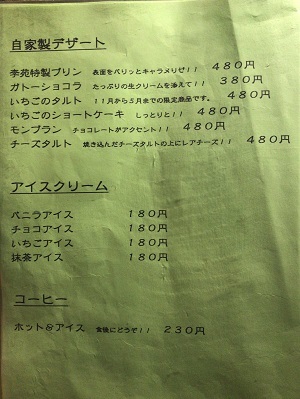 自家製デザート
李苑特製プリン 表面をパリッとキャラメリゼ!! 480円
ガトーショコラ たっぷりの生クリームを添えて!! 380円
いちごのタルト 11月から5月までの限定商品です。 480円
いちごのショートケーキ しっとりと!! 480円
モンブラン チョコレートがアクセント!! 480円
チーズタルト 焼き込んだチーズタルトの上にレアチーズ!! 480円
アイスクリーム
バニラアイス 180円
チョコアイス 180円
いちごアイス 180円
抹茶アイス 180円
コーヒー
ホット&アイス 食後にどうぞ!! 230円